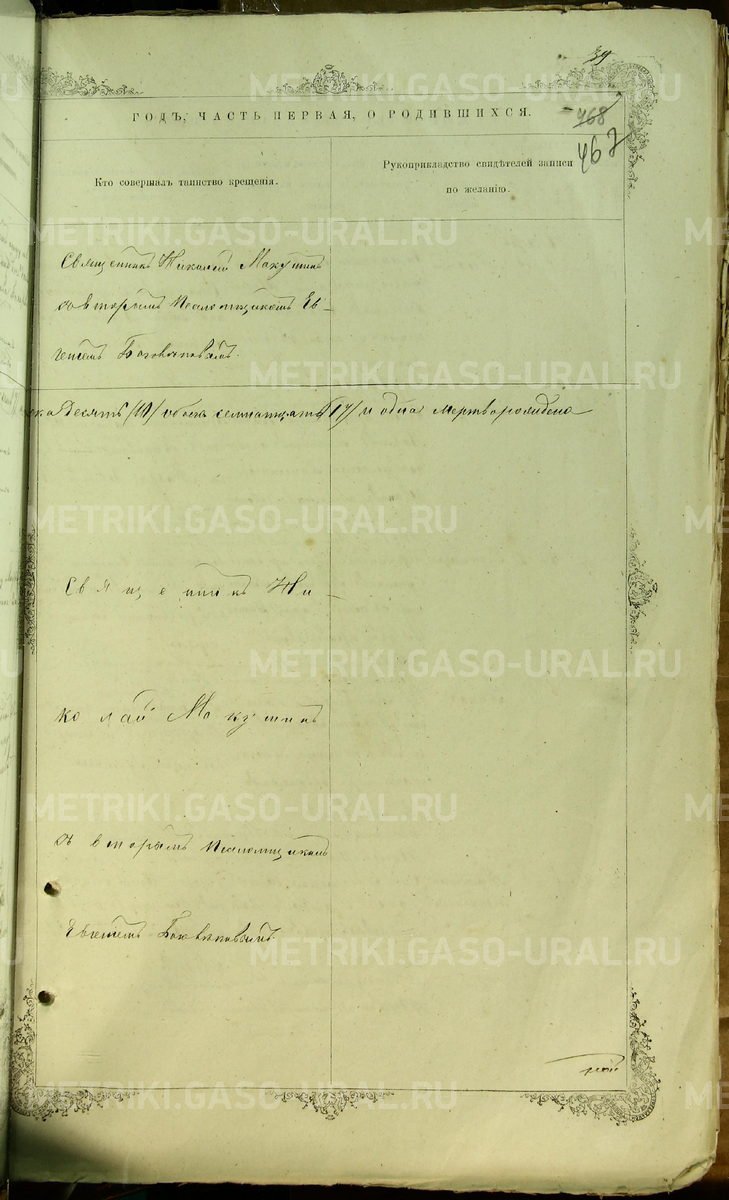 39
ГОДЪ, ЧАСТЬ ПЕРВАЯ, О РОДИВШИХСЯ.
468
467
Кто совершалъ таинство крещенія.
Рукоприкладство свидѣтелей записи
по желанію.
Священникъ Николай Макушинъ
со вторымъ Псаломщикомъ Ев-
геніемъ
Десять /10/ обоего семнатцать /17/ и одна мертворожденна
Священникъ Ни-
колай Макушинъ
со вторымъ Псаломщикомъ
Евгеніемъ
METRIKI.GASO-URAL.RU